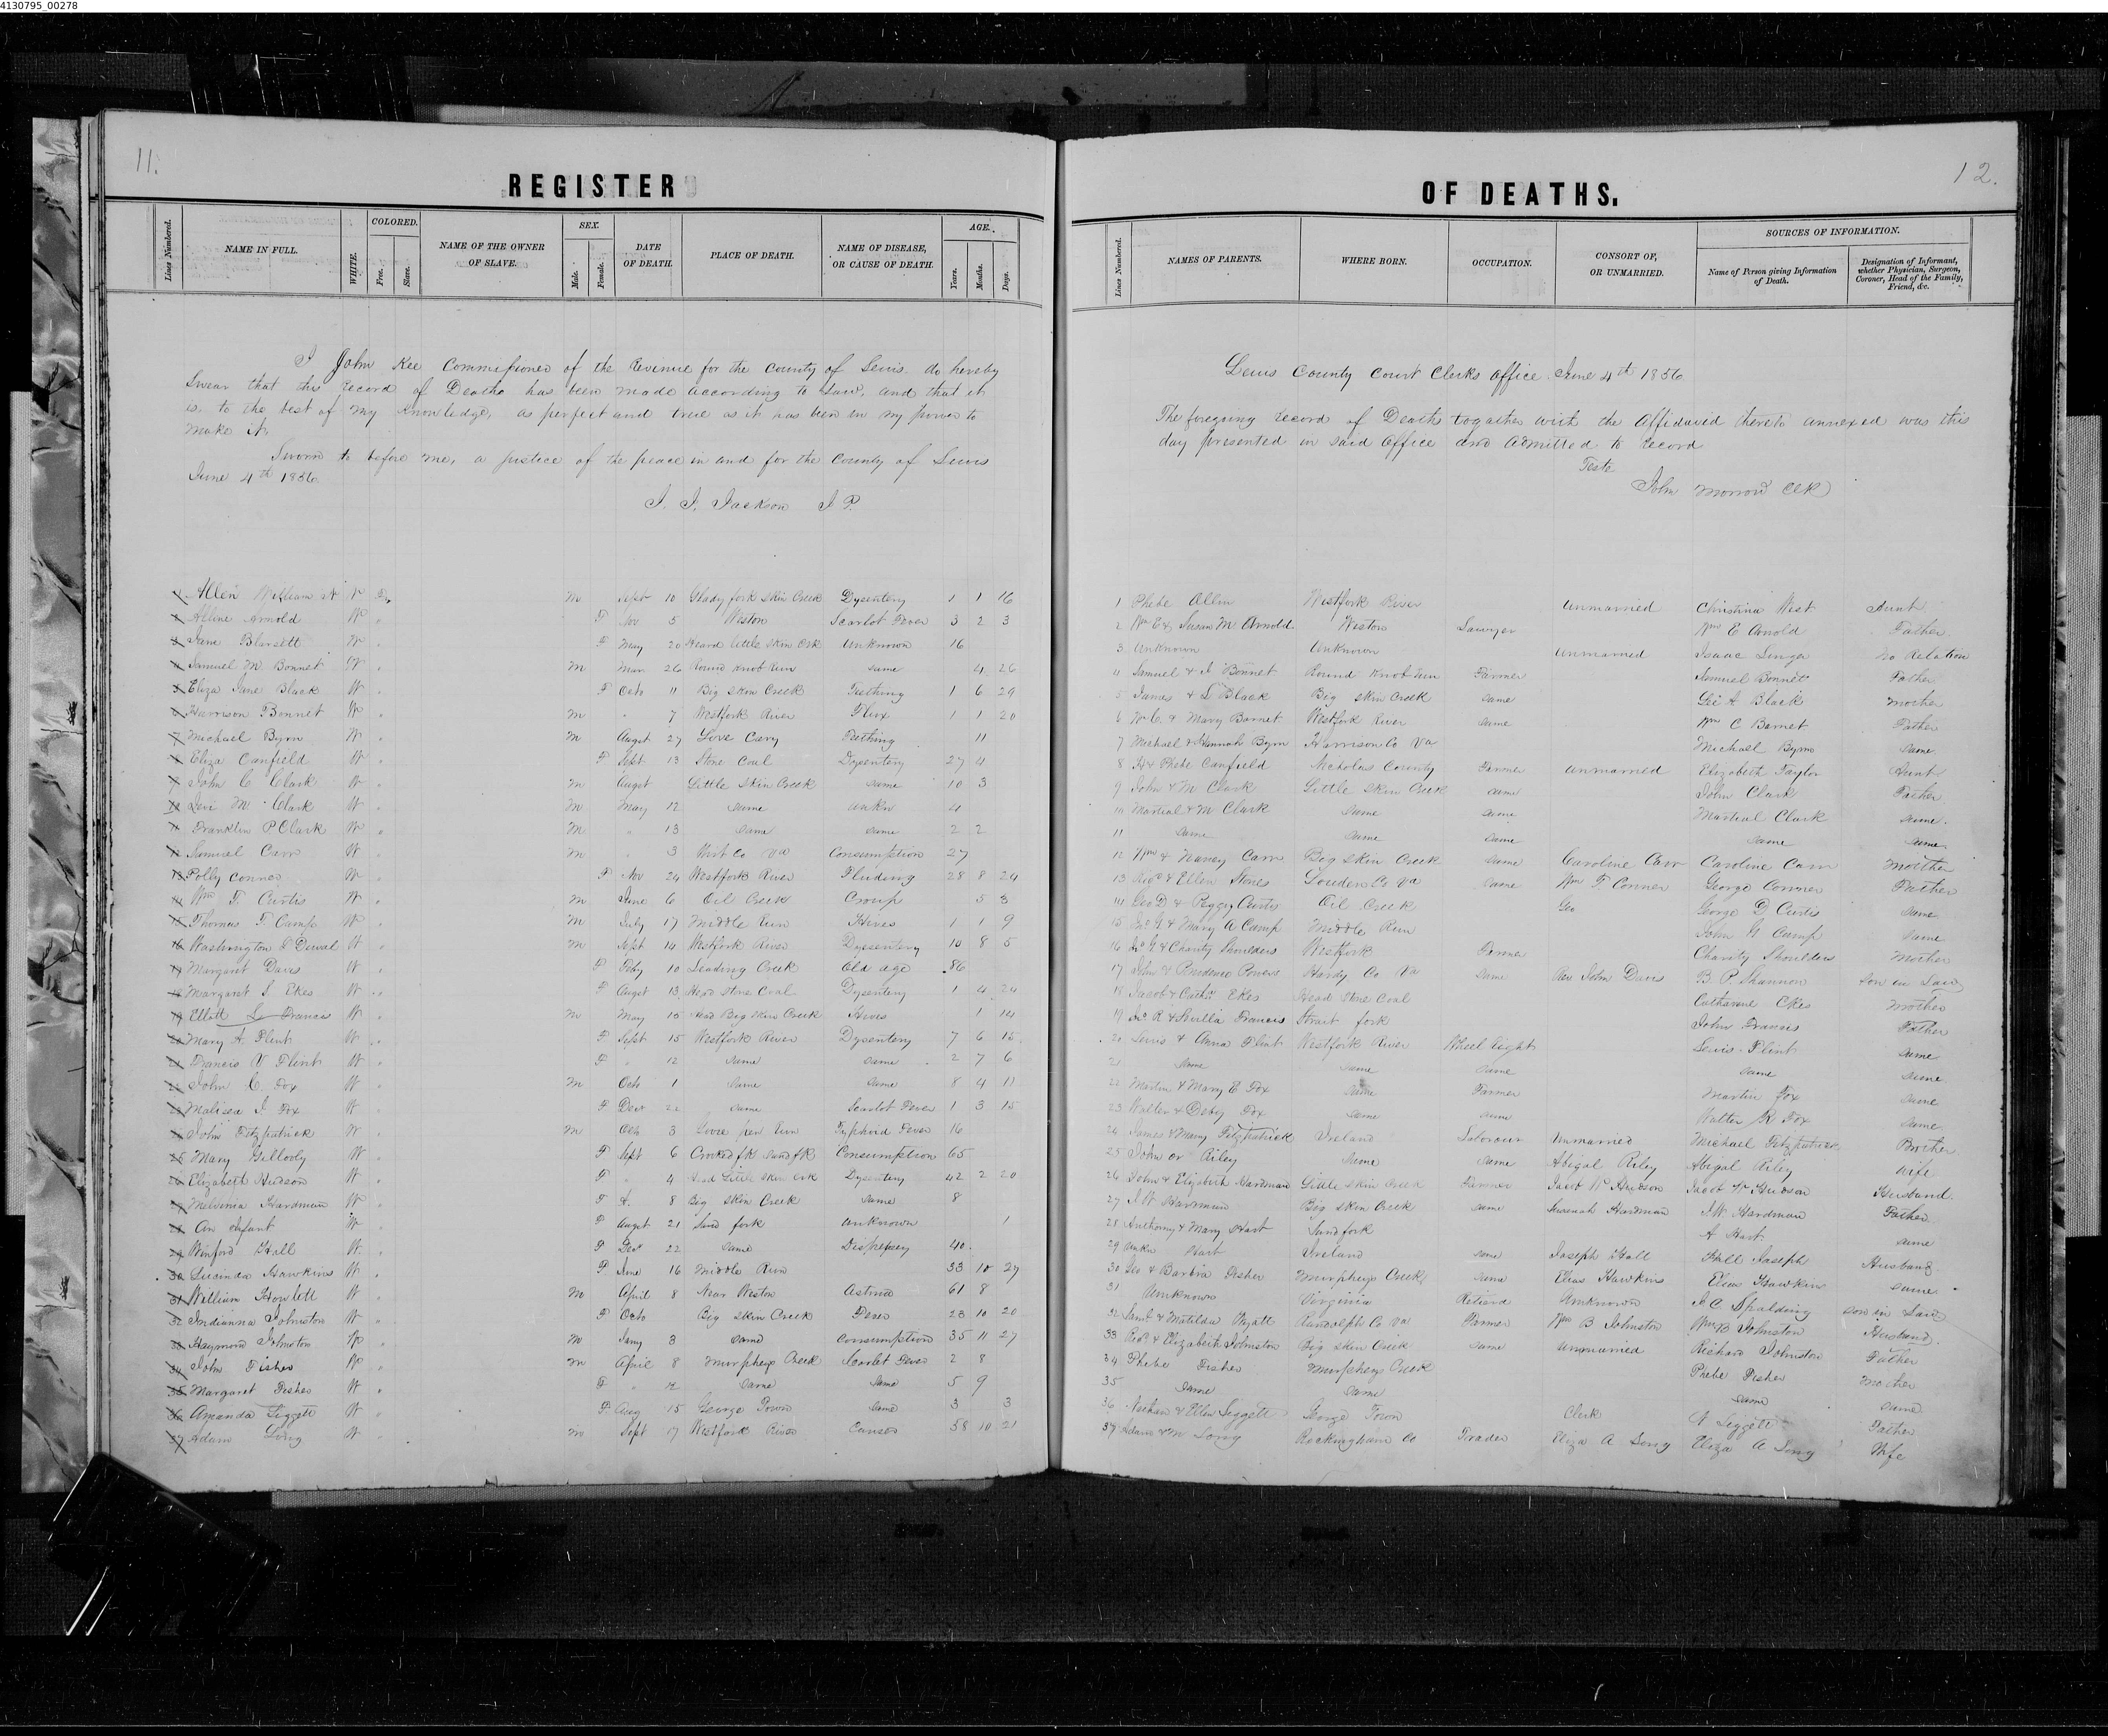 4130795_00278
11.
REGISTER
Lines Numbered.
NAME IN FULL.
WHITE.
COLORED.
Free.
Slave.
NAME OF THE OWNER
OF SLAVE.
SEX.
Male.
Female.
DATE
OF DEATH.
PLACE OF DEATH.
NAME OF DISEASE,
OR CAUSE OF DEATH.
AGE.
Years.
Months.
Days.
I John Kee Commissioner of the Revenue for the County of Lewis do hereby
Swear that this record of Deaths has been made according to Law, and that it
is to the best of my knowledge, as perfect and true as it has been in my power to
make it.
Sworn to before me, a justice of the peace in and for the County of Lewis
June 4th 1856
J. J. Jackson J P.
1 Allen William W F. M Sept 10 Glady fork Skin Creek Dysentery 1 1 16
2 Alline Arnold W " F Nov 5 Weston Scarlot Fever 3 2 3
3 Jane Blarsett W " F May 20 Heard Little Skin Crk Unknown 16
4 Samuel M. Bonnet W " M Mar 26 Round Knob Run Same 4 26
5 Eliza Jane Black W " F Octo 11 Big Skin Creek Teething 1 6 29
6 Harrison Bonnet W " M " 7 Westfork River Flux 1 1 20
7 Michael Byrn W " M Augst 27 Love Cary Teething 11
8 Eliza Canfield W " F Sept 13 Stone Coal Dysentery 27 4
9 John C Clark W " M Augst Little Skin Creek Same 10 3
10 Levi M Clark W " M May 12 Same unkn 4
11 Franklin P Clark W " M " 13 Same Same 2 2
12 Samuel Carr W " M " 3 Wirt Co Va Consumption 27
13 Polly Conner W " F Nov 24 Westfork River Fluding 28 8 24
14 Wm F Curtis W " M June 6 Oil Creek Croup 5 3
15 Thomas F. Camp W " M July 17 Middle Run Hives 1 1 9
16 Washington S Duval W " M Sept 14 Westfork River Dysentery 10 8 5
17 Margaret Davis W " F Feby 10 Leading Creek Old age 86
18 Margaret S Ekes W " F Augst 13 Head Stone Coal Dysentery 1 4 24
19 Ellott L Francis W " M May 15 Head Big Skin Creek Hives 1 14
20 Mary A. Flint W " F Sept 15 Westfork River Dysentery 7 6 15
21 Francis V Flint W " F " 12 Same Same 2 7 6
22 John C. Fox W " M Octo 1 Same Same 8 4 11
23 Malisea J. Fox W " F Decr 22 Same Scarlot Fever 1 3 15
24 John Fitzpatrick W " M Oct 3 Love pen Run Typhoid Fever 16
25 Mary Gillooly W " F Sept 6 Crooked fk Sand fk Consumption 65
26 Elizabeth Hudson W " F " 4 Head Little Skin Crk Dysentery 42 2 20
27 Melvinia Hardman W " F A. 8 Big Skin Creek Same 8
28 An Infant W " F Augst 21 Sand fork Unknown 1
29 Winford Hall W " F Decr 22 Same 40
30 Lucinda Hawkins W " F June 16 Middle Run 33 10 27
31 William Howlett W " M April 8 Near Weston Astma 61 8
32 Indianna Johnston W " F Octo Big Skin Creek Fever 23 10 20
33 Haymond Johnston W " M Jany 3 Same Consumption 35 11 27
34 John Fisher W " M April 8 Murpheys Creek Scarlet Fever 2 8
35 Margaret Fisher W " F " 12 Same Same 5 9
36 Amanda Liggett W " F Aug 15 George Town Same 3 3
37 Adam Long W " M Sept 17 Westfork River Canser 58 10 21
12.
OF DEATHS.
Lines Numbered.
NAMES OF PARENTS.
WHERE BORN.
OCCUPATION.
CONSORT OF,
OR UNMARRIED.
SOURCES OF INFORMATION.
Name of Person giving Information
of Death.
Designation of Informant,
whether Physician, Surgeon,
Coroner, Head of the Family,
Friend, &c.
Lewis County Court Clerks Office June 4th 1856
The foregoing record of Deaths togather with the Affidavid thereto annexed was this
day presented in said Office and admitted to record
Teste
John Morrow Clk
1 Phebe Allen Westfork River Unmarried Christina West Aunt
2 Wm E & Susan M Arnold. Weston Lawyer Wm E Arnold Father
3 Unknown Unknown Unmarried Isaac Singer No Relation
4 Samuel & J Bonnet Round Knob Run Farmer Samuel Bonnet Father
5 James & L Black Big Skin Creek Same Geo A Black mother
6 W. C. & Mary Bonnet Westfork River Same Wm C Bonnet Father
7 Michael & Hannah Byrn Harrison Co Va Michael Byrns Same
8 H & Phebe Canfield Nicholas County Farmer Unmarried Elizabeth Taylor Aunt
9 John & M Clark Little Skin Creek Same John Clark Father
10 Martial & M Clark Same Same Martial Clark Same
11 Same Same Same Same Same
12 Wm & Nancy Carr Big Skin Creek Same Caroline Carr Caroline Carr Mother
13 Richd & Ellen Stones Louden Co Va Same Wm F. Conner George Conner Father
14 Geo D & Peggy Curtis Oil Creek Geo George D Curtis Same
15 Jno G. & Mary A Camp Middle Run John G Camp Same
16 Jno G. & Charity Shoulders Westfork Farmer Charity Shoulders Mother
17 John & Prudence Powers Hardy Co. Va Same Rev John Davis B. P. Shannon Son in Law
18 Jacob & Cathn Ekes Head Stone Coal Catharine Ekes Mother
19 Jno R & Sevilla Francis Strait fork John Francis Father
20 Lewis & Anna Flint Westfork River Wheel Right Lewis Flint Same
21 Same Same Same Same Same
22 Martin & Mary E Fox Same Farmer Martin Fox Same
23 Walter & Deby Fox Same Same Walter R Fox Same
24 James & Mary Fitzpatrick Ireland Laborour Unmarried Michael Fitzpatrick Brother
25 John or Riley Same Same Abigal Riley Abigal Riley Wife
26 John & Elizabeth Hardman Little Skin Creek Farmer Jacob W Hudson Jacob W Hudson Husband
27 J. W. Hardman Big Skin Creek Same Susanah Hardman J. W Hardman Father
28 Anthony & Mary Hart Sand fork A Hart Same
29 Unkn Hart Ireland Same Joseph Hall Hall Joseph Husband
30 Geo & Barbra Fisher Murpheys Creek Same Elias Hawkins Elias Hawkins Same
31 Unknown Virginia Retierd Unknown J. C. Spalding Son in Law
32 Saml & Matilda Wyatt Randolph Co Va Farmer Wm B Johnston Wm B Johnston Husband
33 Richd & Elizabeth Johnston Big Skin Creek Same Unmarried Richard Johnston Father
34 Phebe Fisher Murpheys Creek Phebe Fisher Mother
35 Same Same Same Same
36 Nathan & Ellen Leggett George Town Clerk N Leggett Father
37 Adam & M Long Rockingham Co Trader Eliza A Long Eliza A Long Wife